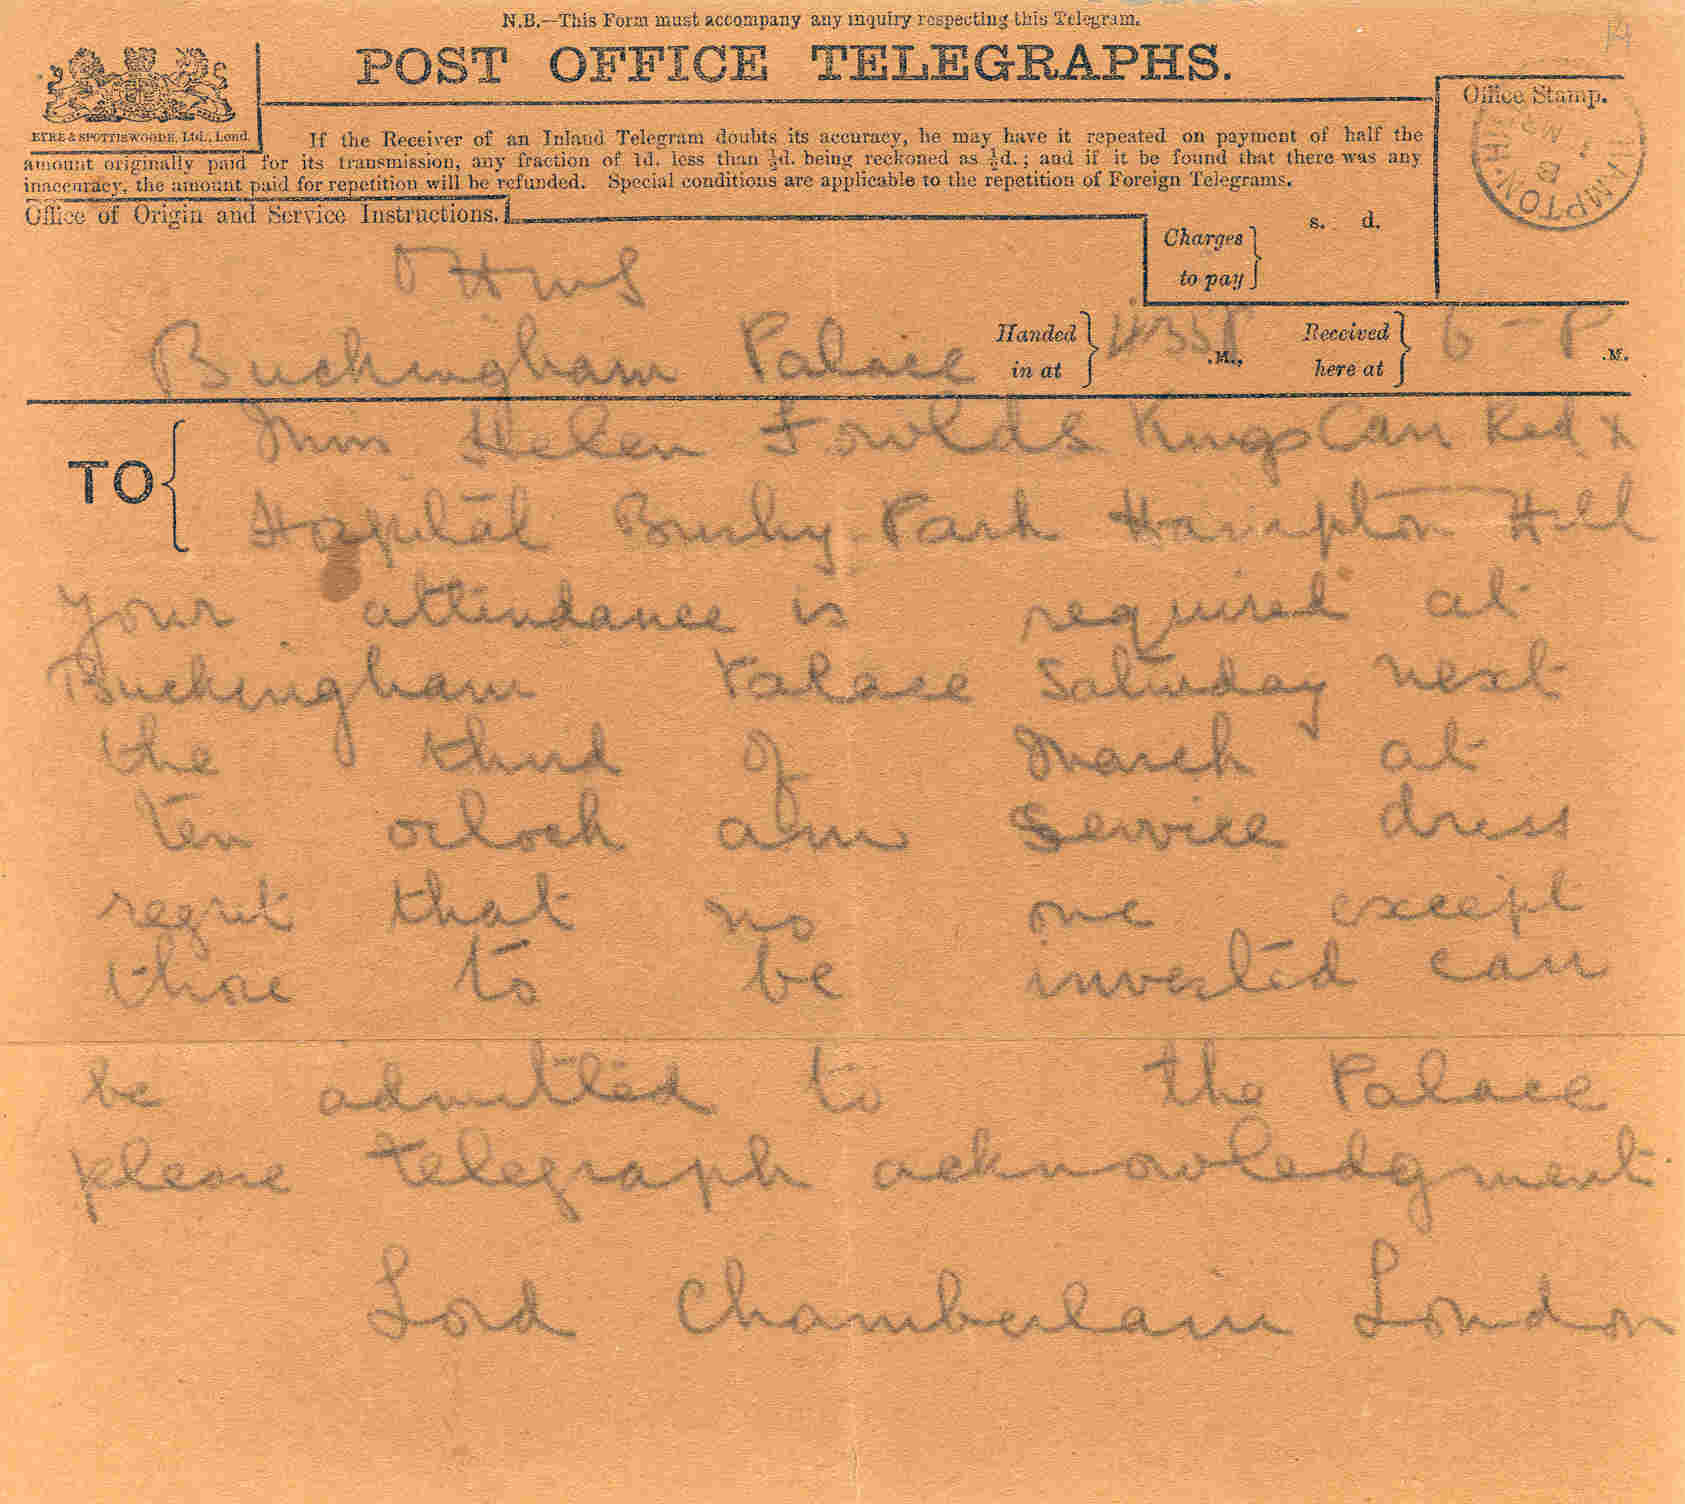 N.B.—This Form must accompany any inquiry respecting this Telegram.
POST OFFICE TELEGRAPHS.
EYRE & SPOTTISWOODE, Ltd., Lond.
Office Stamp.
HAMPTON HILL
B
MR
If the Receiver of an Inland Telegram doubts its accuracy, he may have it repeated on payment of half the
amount originally paid for its transmission, any fraction of 1d. less than ½d. being reckoned as ½d.; and if it be found that there was any
inaccuracy, the amount paid for repetition will be refunded. Special conditions are applicable to the repetition of Foreign Telegrams.
Office of Origin and Service Instructions.
Charges to pay } s. d.
OHMS
Buckingham Palace Handed in at } 4.35 P .M., Received here at } 6 - P .M.
TO { Miss Helen Fowlds Kings Can Red X
Hospital Bushy Park Hampton Hill
your attendance is required at
Buckingham Palace Saturday next
the third of March at
ten oclock am Service dress
regret that no one except
those to be invested can
be admitted to the Palace
please telegraph acknowledgment
Lord Chamberlain London